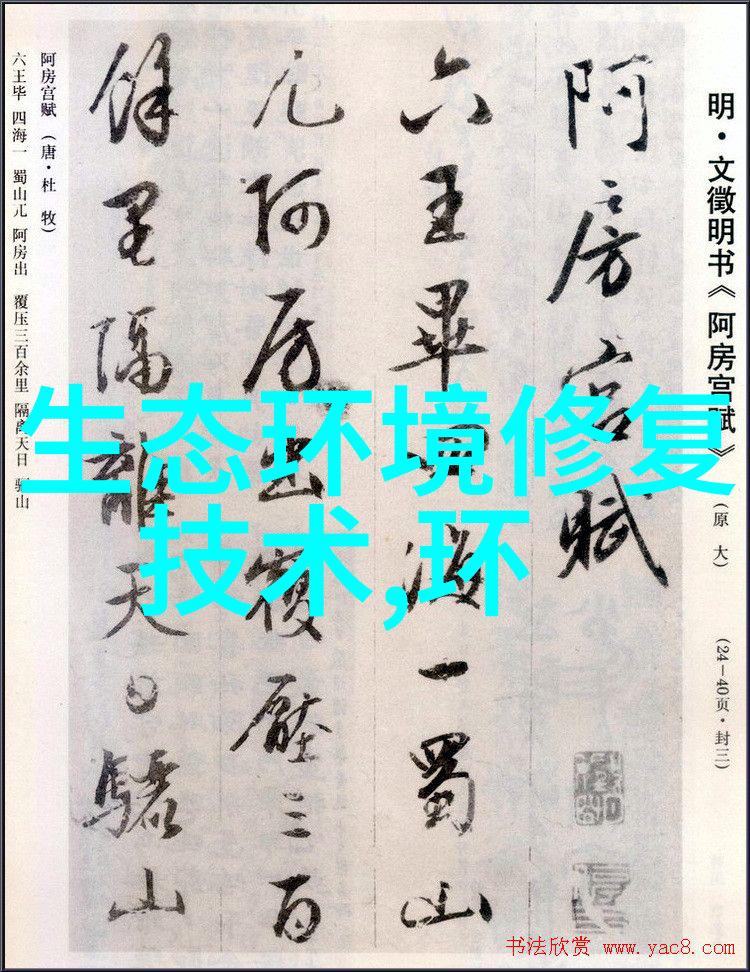 明·文徵明书《阿房宫赋》（原 大）（24—40页·封三）
阿房宫赋
六王畢四海一蜀山
兀阿房出覆壓三百
餘里隔離天日驪山
阿房宫赋（唐·杜 牧）
六王毕 四海一 蜀山兀 阿房出 覆压三百余里 隔离天日 骊山
生态环境修复
技术,环
书法欣赏 www.yac8.com